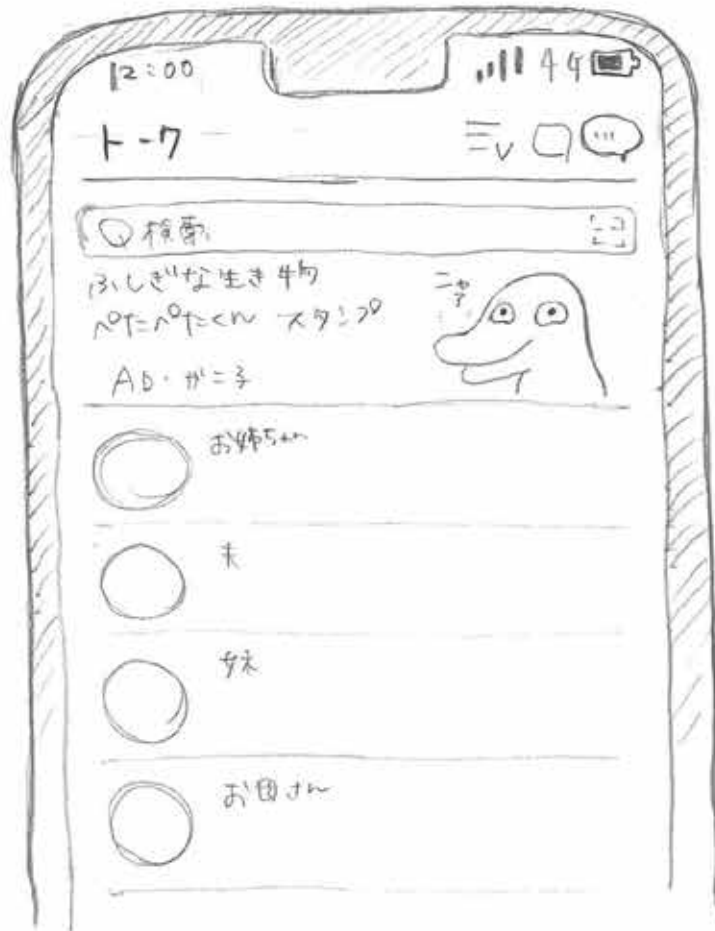 12:00 4G
トーク
検索
ふしぎな生き物
ぺたぺたくん スタンプ
ニャア
AD・がこ子
お姉ちゃん
夫
妹
お母さん